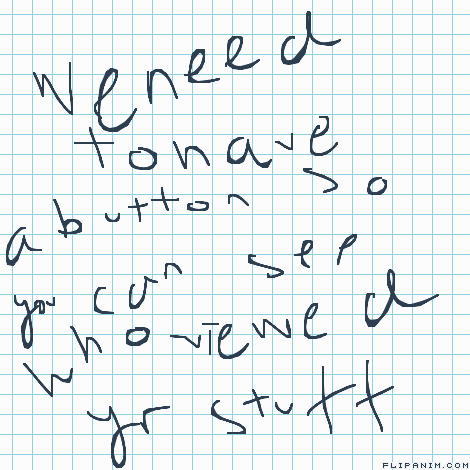 We need
to have so
a button
you can see
who viewed
yr stuff
FLIPANIM.COM